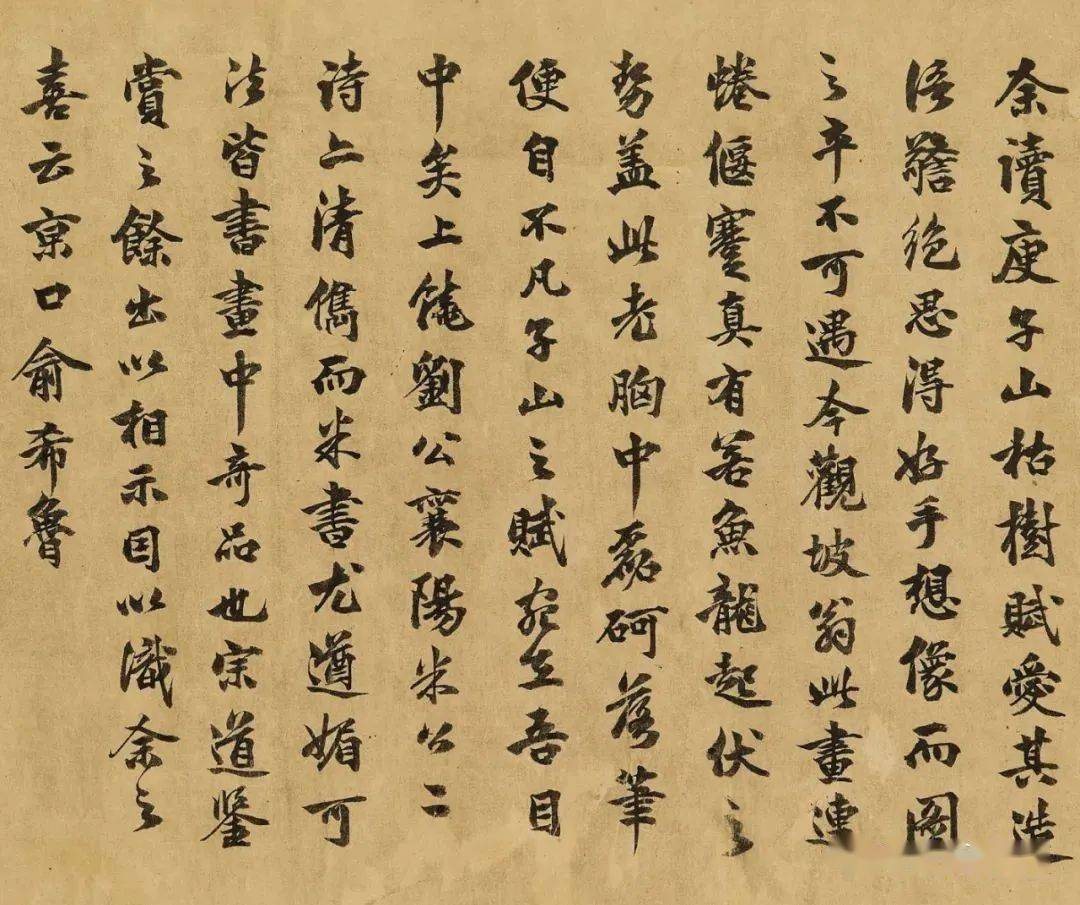 余讀庾子山枯樹賦愛其造
語警絶思得好手想像而圖
之卒不可遇今觀坡翁此畫連
蜷偃蹇真有若魚龍起伏之
勢盖此老胸中磊砢落筆
便自不凡子山之賦宛在吾目
中矣上饒劉公襄陽米公二
詩亦清儁而米書尤遒媚可
法皆書畫中奇品也宗道鑒
賞之餘出以相示因以識余之
喜云京口俞希魯